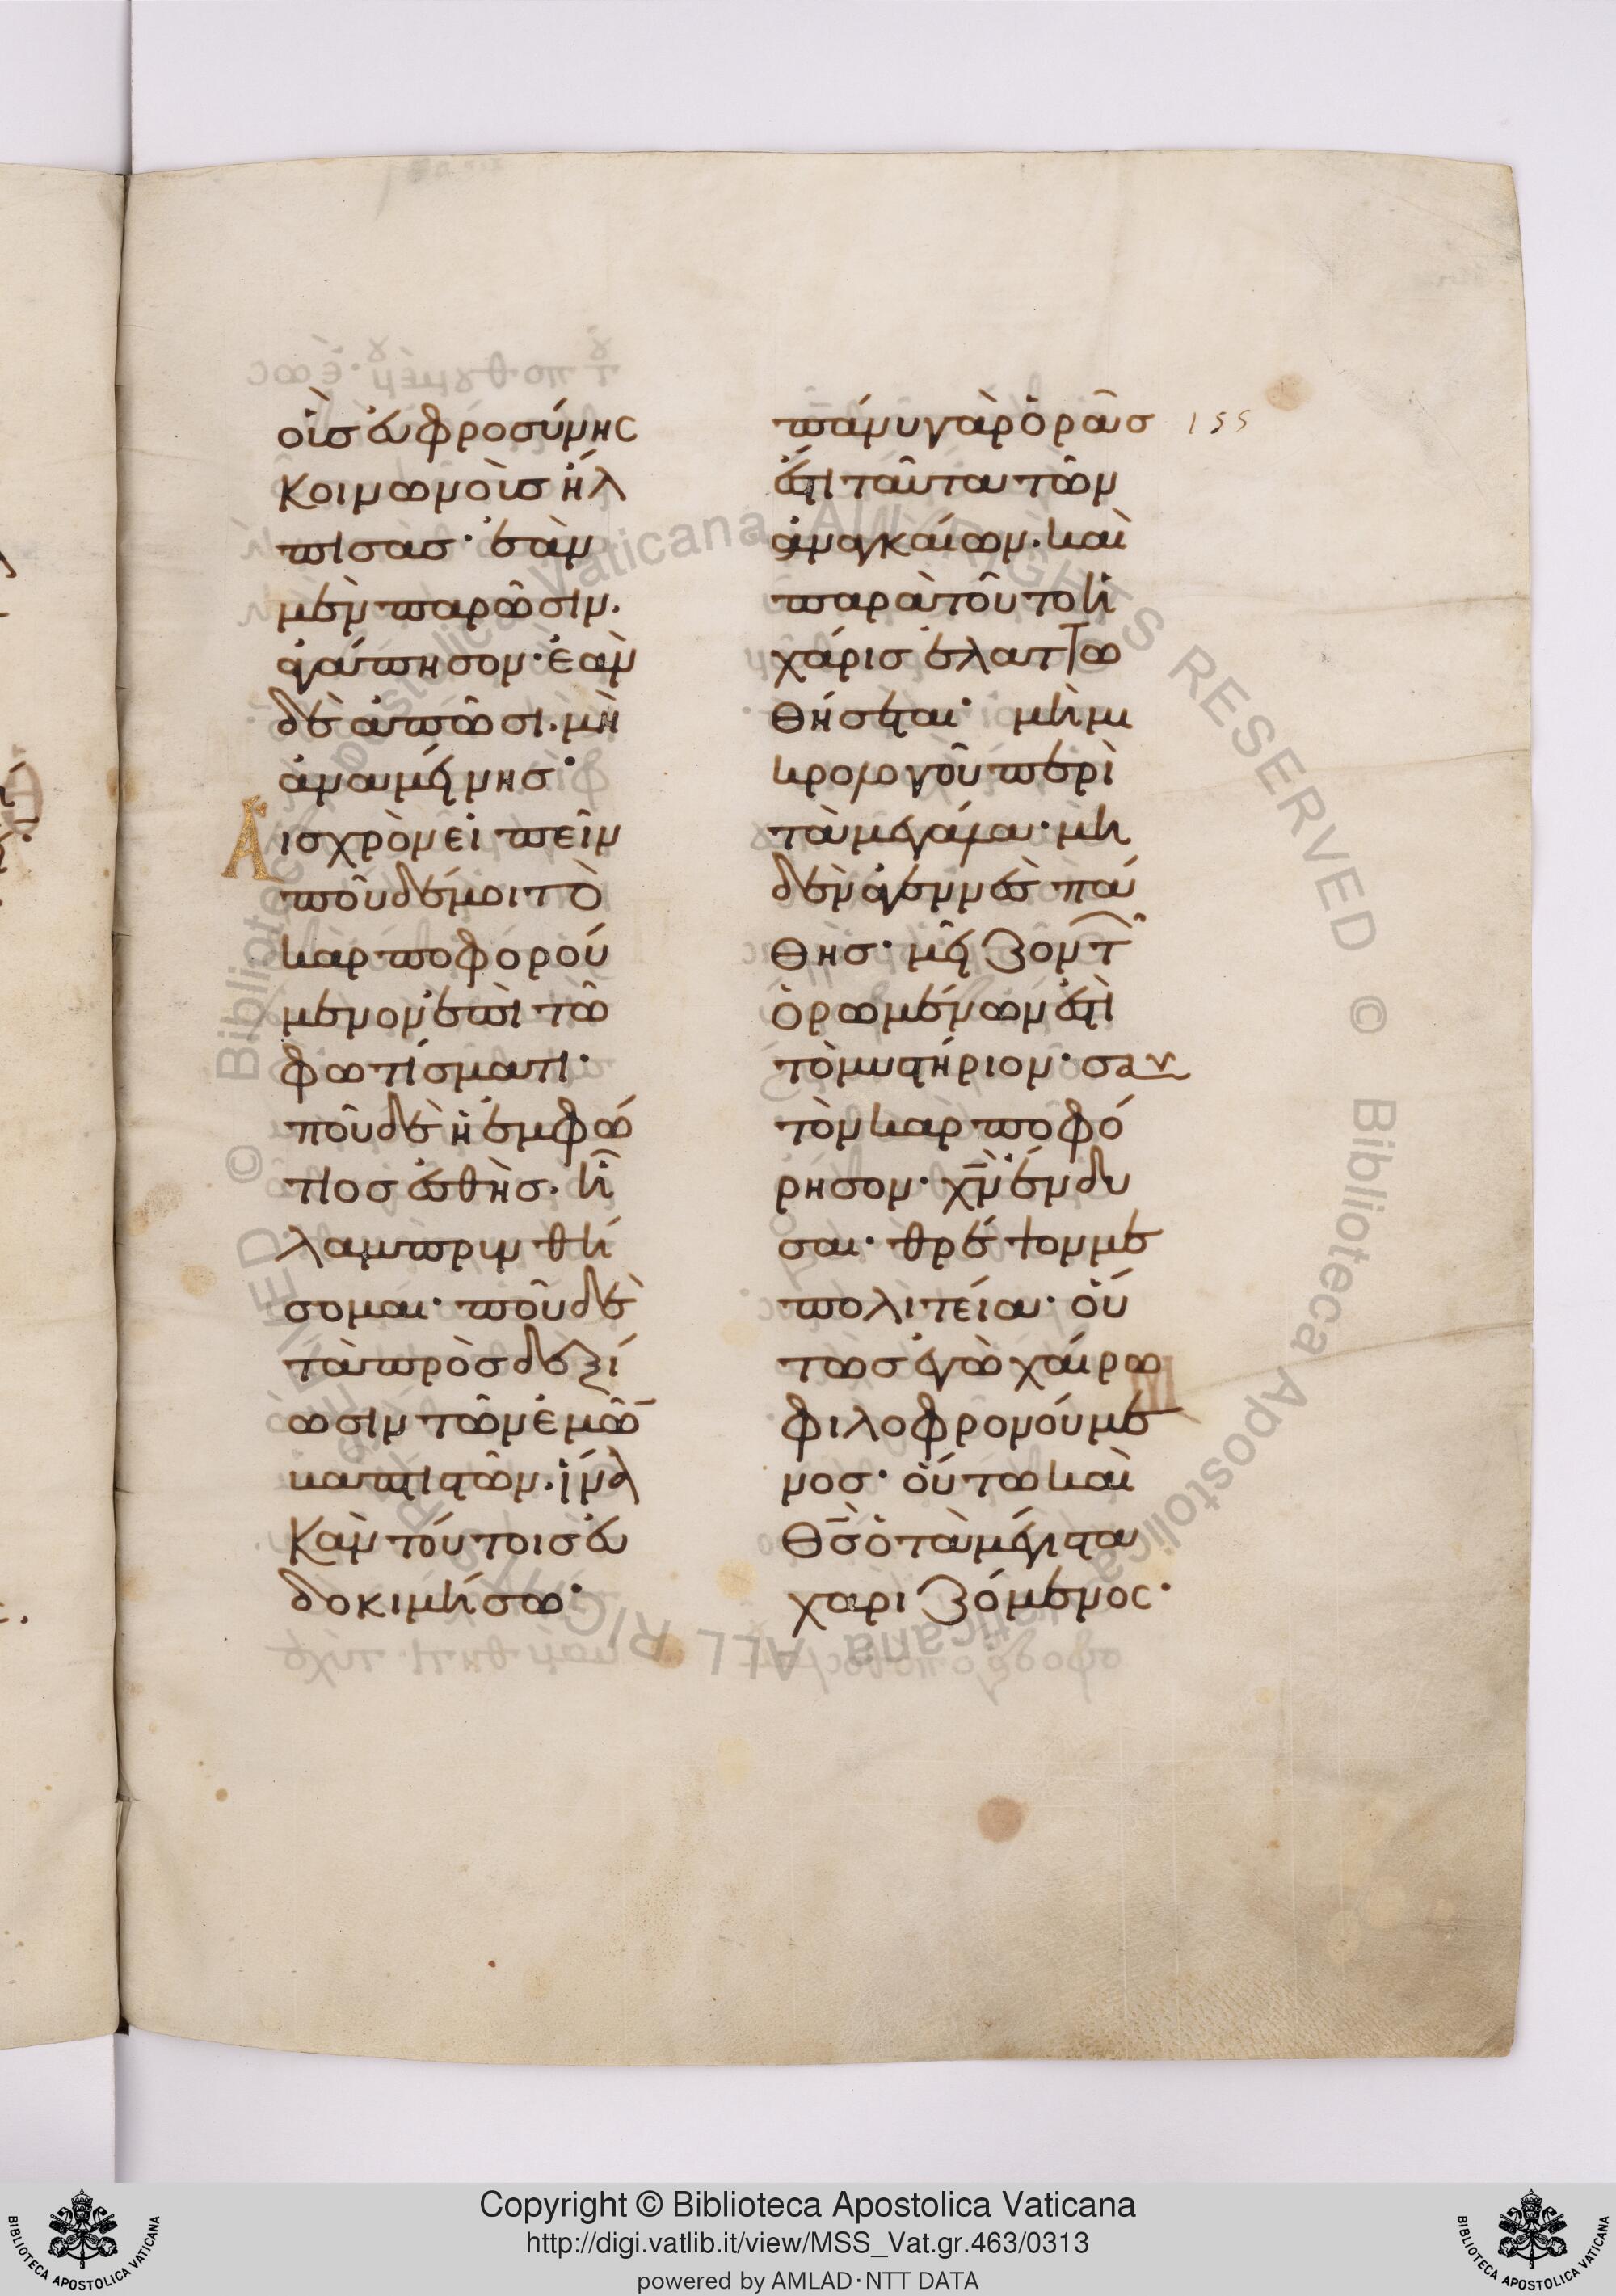 οἷς εὐφροσύνης
κοινωνοὺς ἤλ
πισας· ἐὰν
μὲν παρῶσιν.
ἀγάπησον· ἐὰν
δὲ ἀπῶσι. μὴ
ἀναμείνῃς·
Αἰσχρὸν εἰπεῖν
ποῦ δέ μοι τὸ
καρποφορού
μενον ἐπὶ τῶ
φωτίσματι·
ποῦ δὲ ἡ ἐμφώ
τιος ἐσθῆς. ἧ
λαμπρυνθή
σομαι· ποῦ δὲ
τὰ πρὸς δεξί
ωσιν τῶν ἐμῶν
βαπτιστῶν. ἵνα
κἀν τούτοις εὐ
δοκιμήσω·
πάνυ γὰρ ὁρᾶς
ἔτι ταῦτα τῶν
ἀναγκαίων. καὶ
παρὰ τοῦτο ἡ
χάρις ἐλαττω
θήσεται· μὴ μι
κρολογοῦ περὶ
τὰ μεγάλα· μη
δὲν ἀγεννὲς πά
θης· μεῖζον τῶν
ὁρωμένων ἐστὶ
τὸ μυστήριον· σαυ
τὸν καρποφό
ρησον· χν ἔνδυ
σαι· θρέψον με
πολιτεία· οὕ
τως ἐγὼ χαίρω
φιλοφρονούμε
νος· οὕτω καὶ
θς ὁ τὰ μέγιστα
χαριζόμενος·
155
Copyright © Biblioteca Apostolica Vaticana
http://digi.vatlib.it/view/MSS_Vat.gr.463/0313
powered by AMLAD·NTT DATA